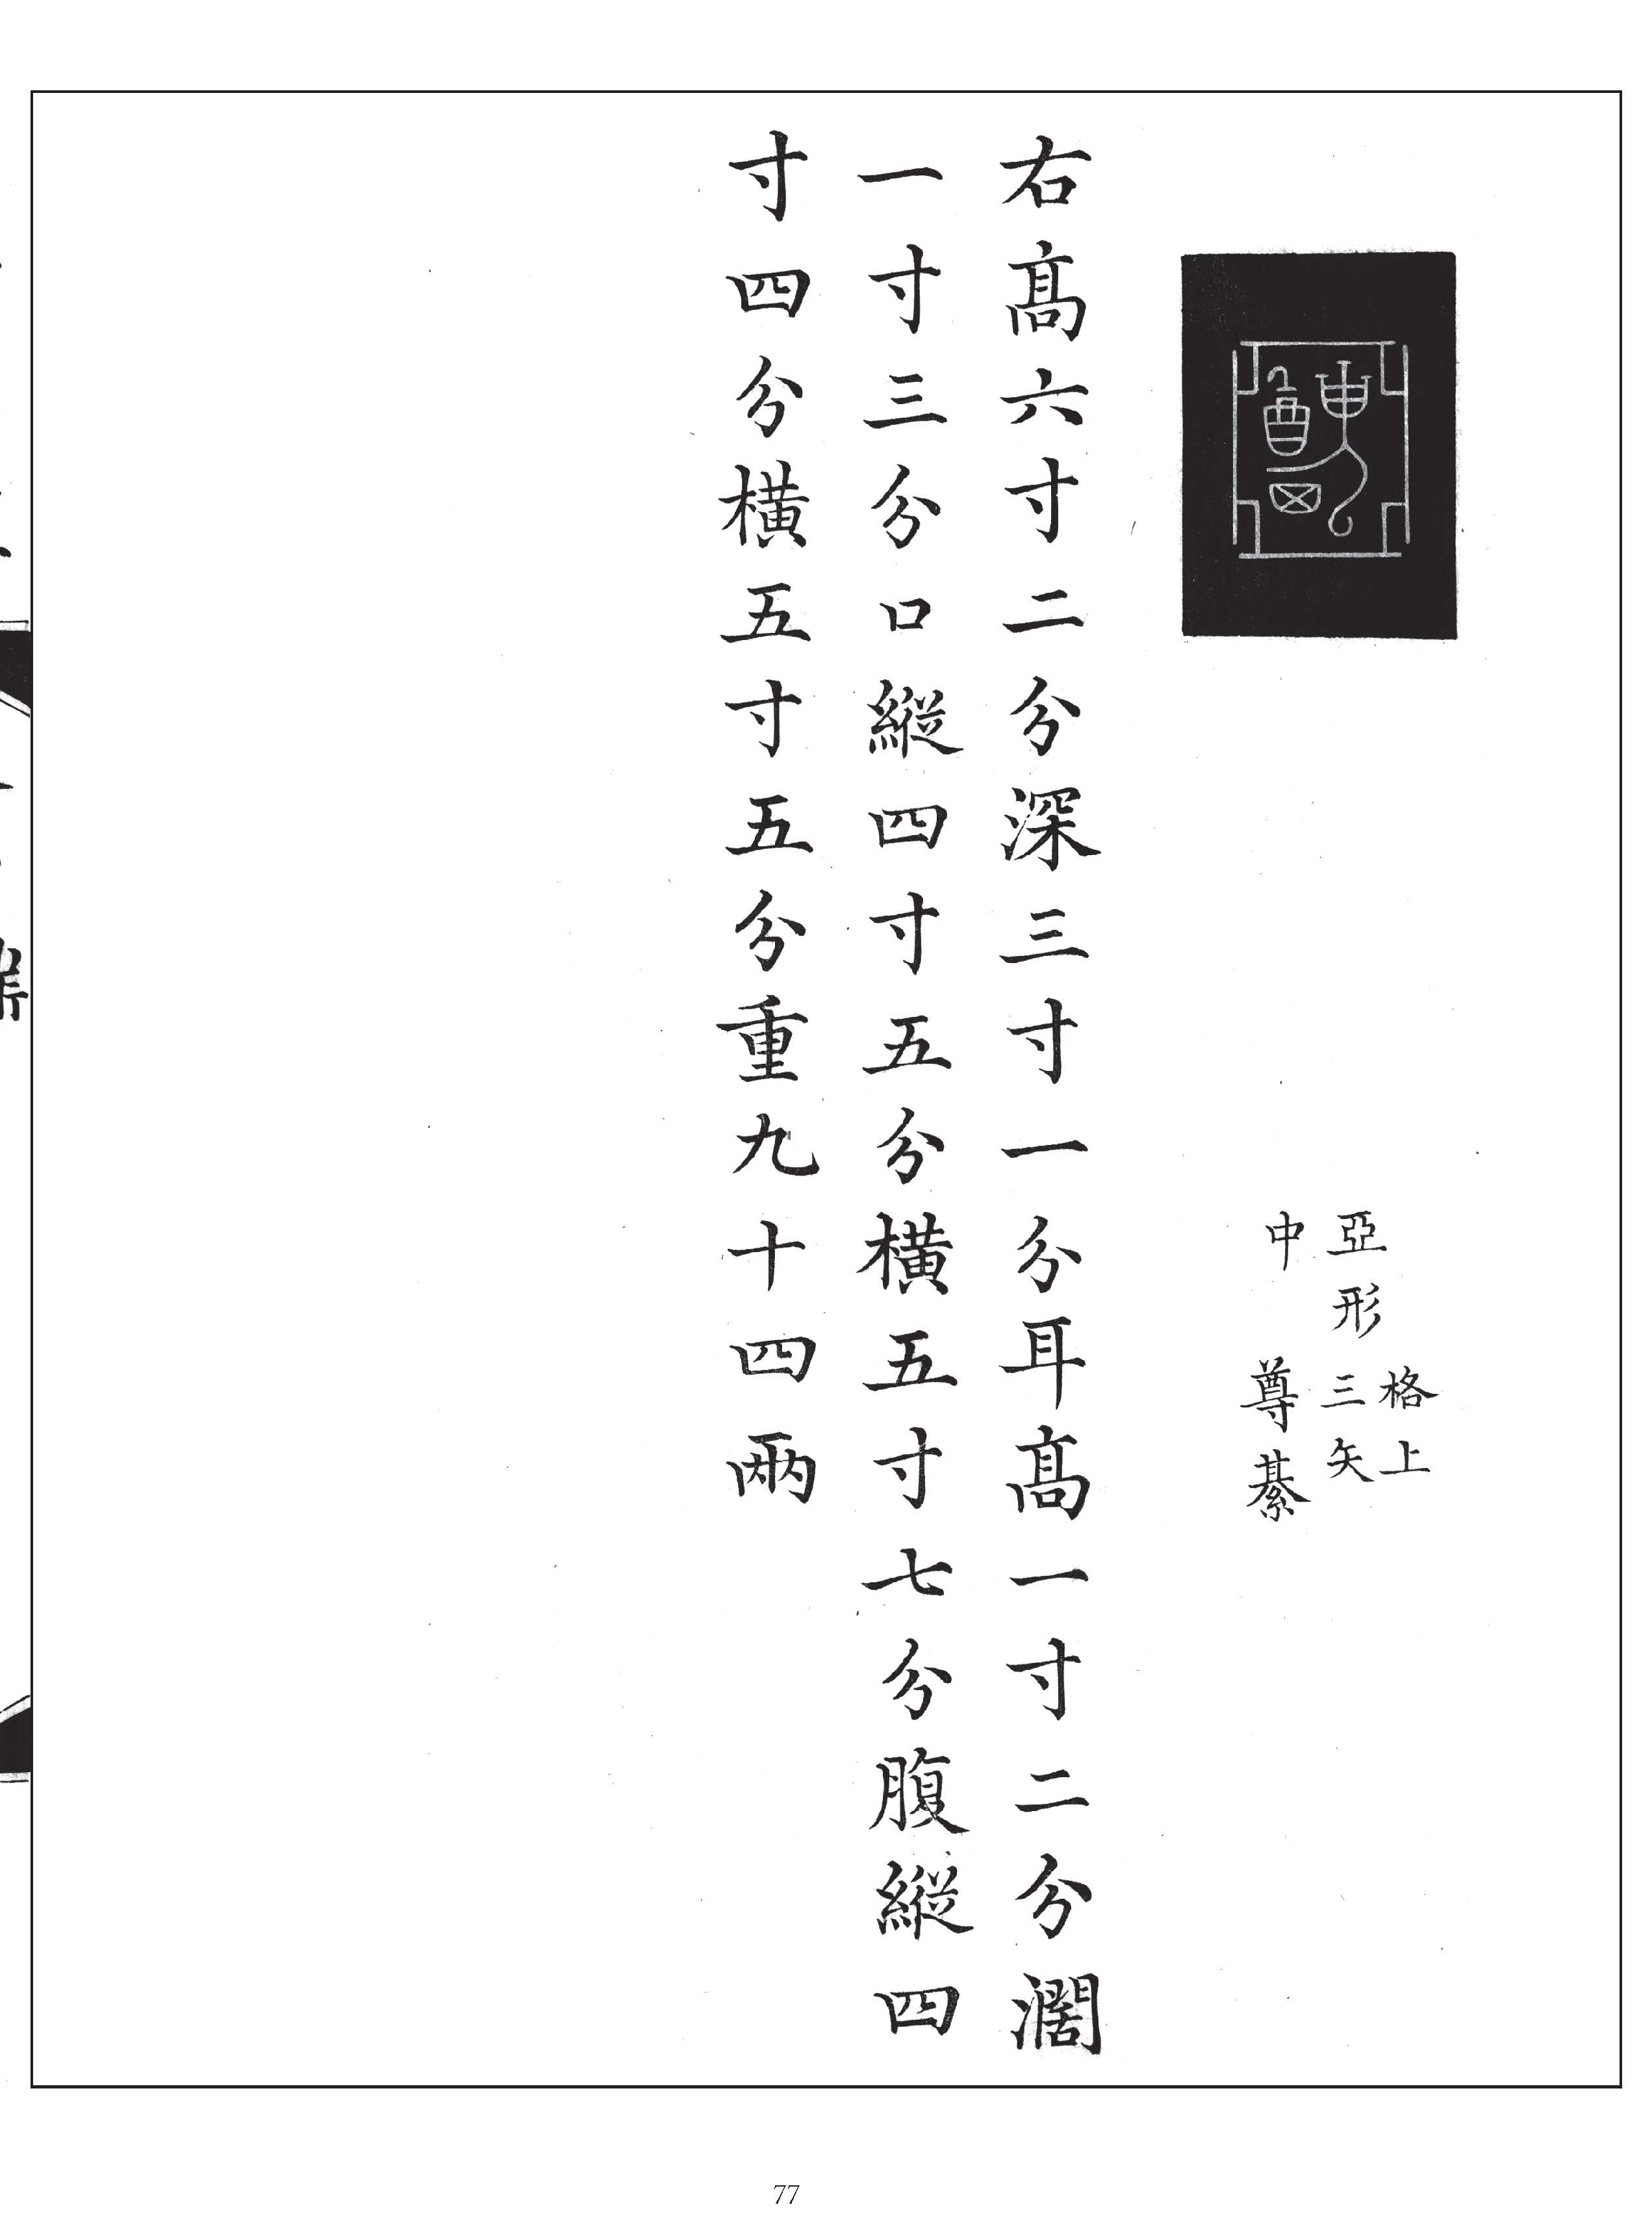 亞形
中
格上
三矢
尊綦
右高六寸二分深三寸一分耳高一寸二分濶
一寸三分口縱四寸五分橫五寸七分腹縱四
寸四分橫五寸五分重九十四兩
77